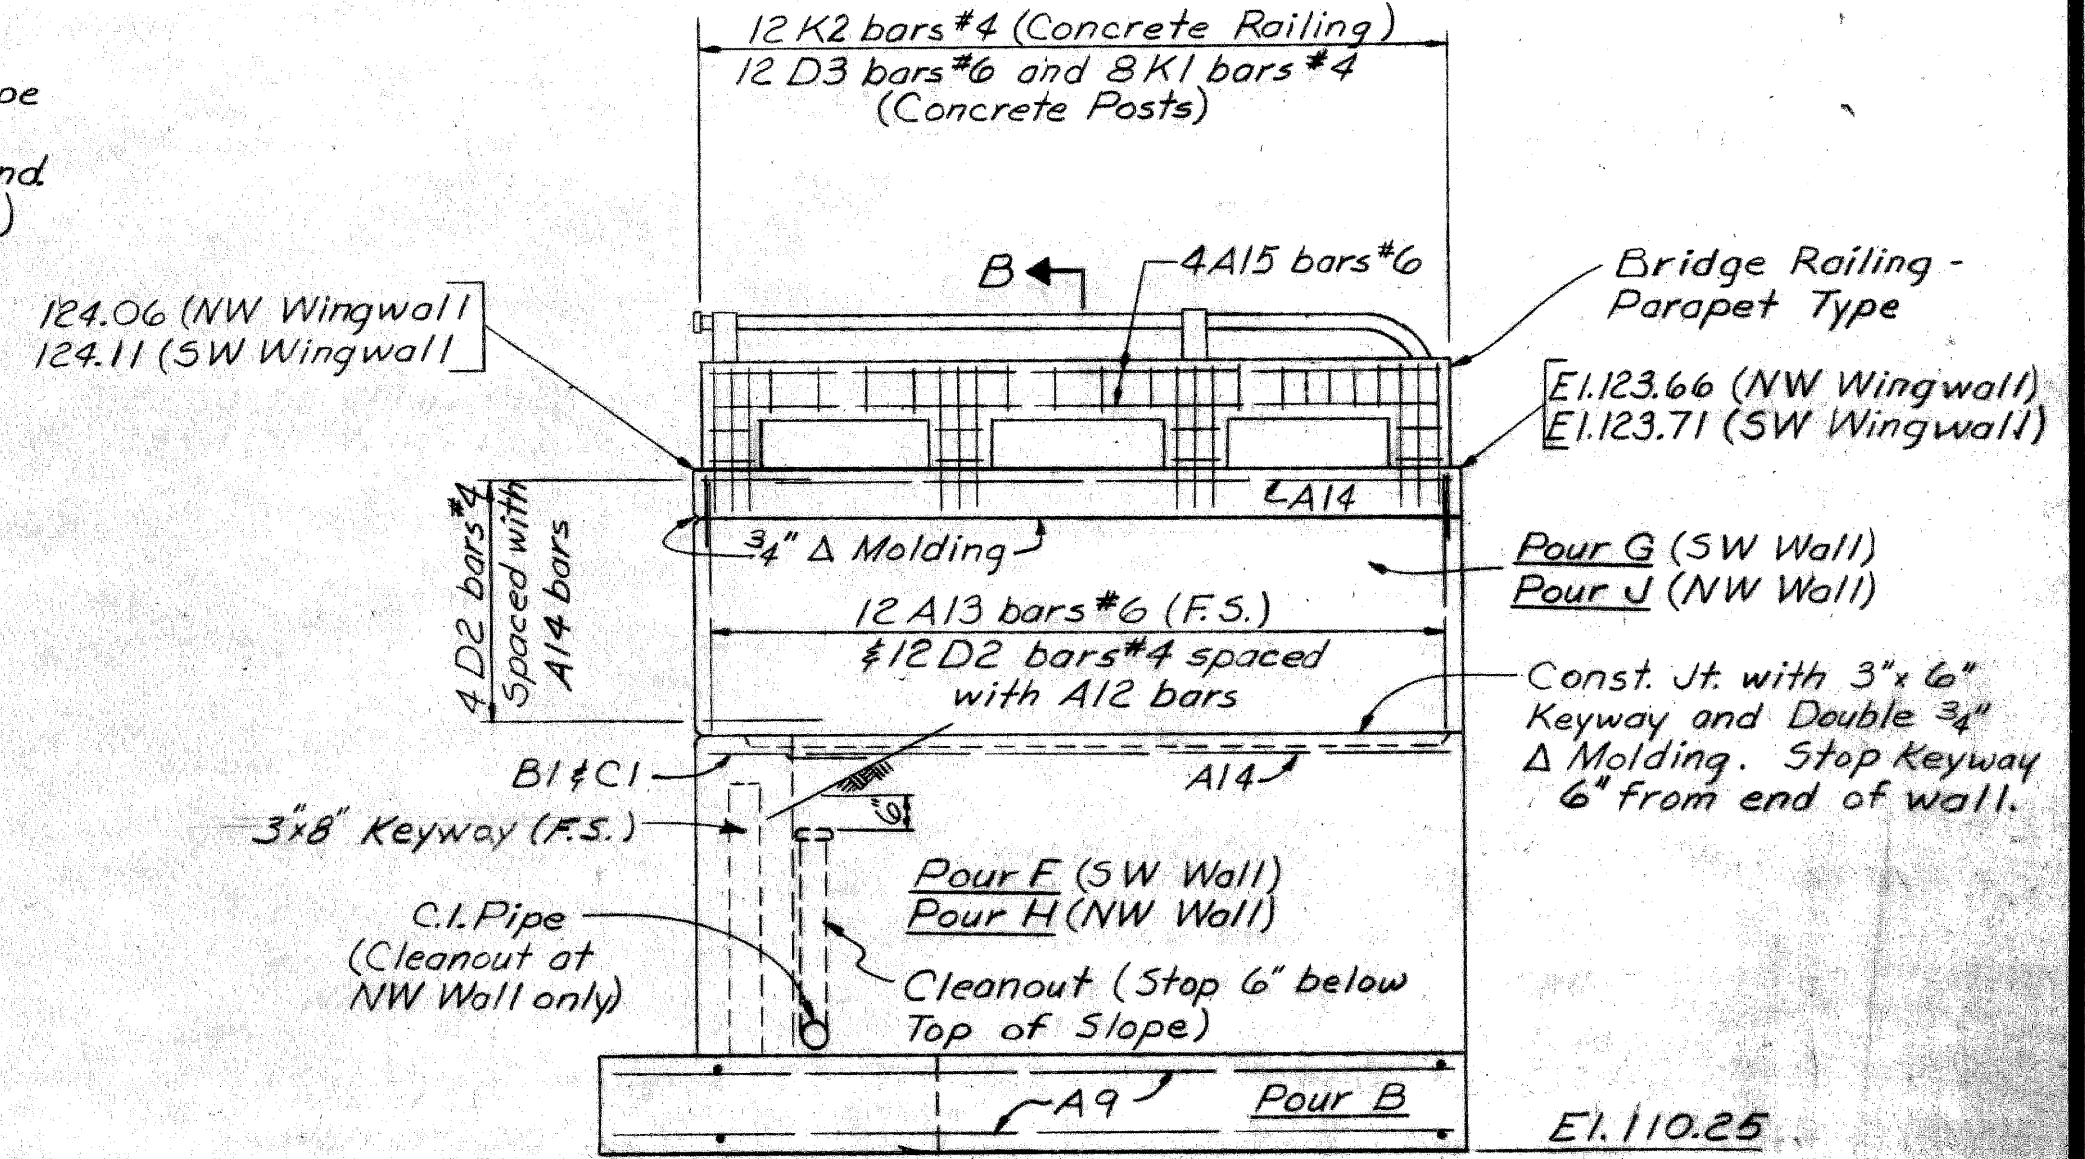 12 K2 bars #4 (Concrete Railing)
12 D3 bars #6 and 8 K1 bars #4
(Concrete Posts)
B
4 A15 bars #6
Bridge Railing -
Parapet Type
124.06 (NW Wingwall
124.11 (SW Wingwall
El. 123.66 (NW Wingwall)
El. 123.71 (SW Wingwall)
A14
4 D2 bars #4
Spaced with
A14 bars
3/4" Δ Molding
Pour G (SW Wall)
Pour J (NW Wall)
12 A13 bars #6 (F.S.)
& 12 D2 bars #4 spaced
with A12 bars
Const. Jt. with 3"x 6"
Keyway and Double 3/4"
Δ Molding. Stop Keyway
6" from end of wall.
B1 & C1
A14
6"
3"x8" Keyway (F.S.)
Pour F (SW Wall)
Pour H (NW Wall)
C.I. Pipe
(Cleanout at
NW Wall only)
Cleanout (Stop 6" below
Top of Slope)
A9
Pour B
El. 110.25